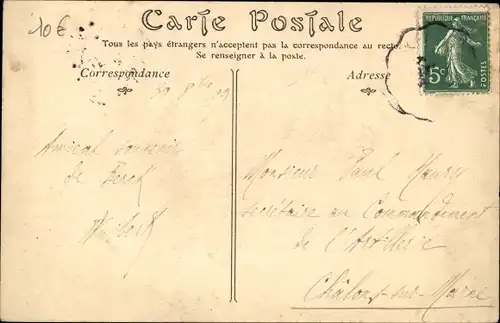 10€
Carte Postale
Tous les pays étrangers n'acceptent pas la correspondance au recto.
Se renseigner à la poste.
Correspondance
Adresse
RÉPUBLIQUE FRANÇAISE
5c
POSTES
Amical souvenir
de Berck
Monsieur Paul
secrétaire au Commandement
de l'Artillerie
Châlons-sur-Marne